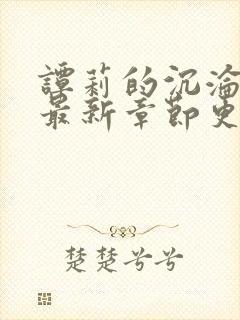 譚莉的沉淪
最新章節更
楚楚兮兮